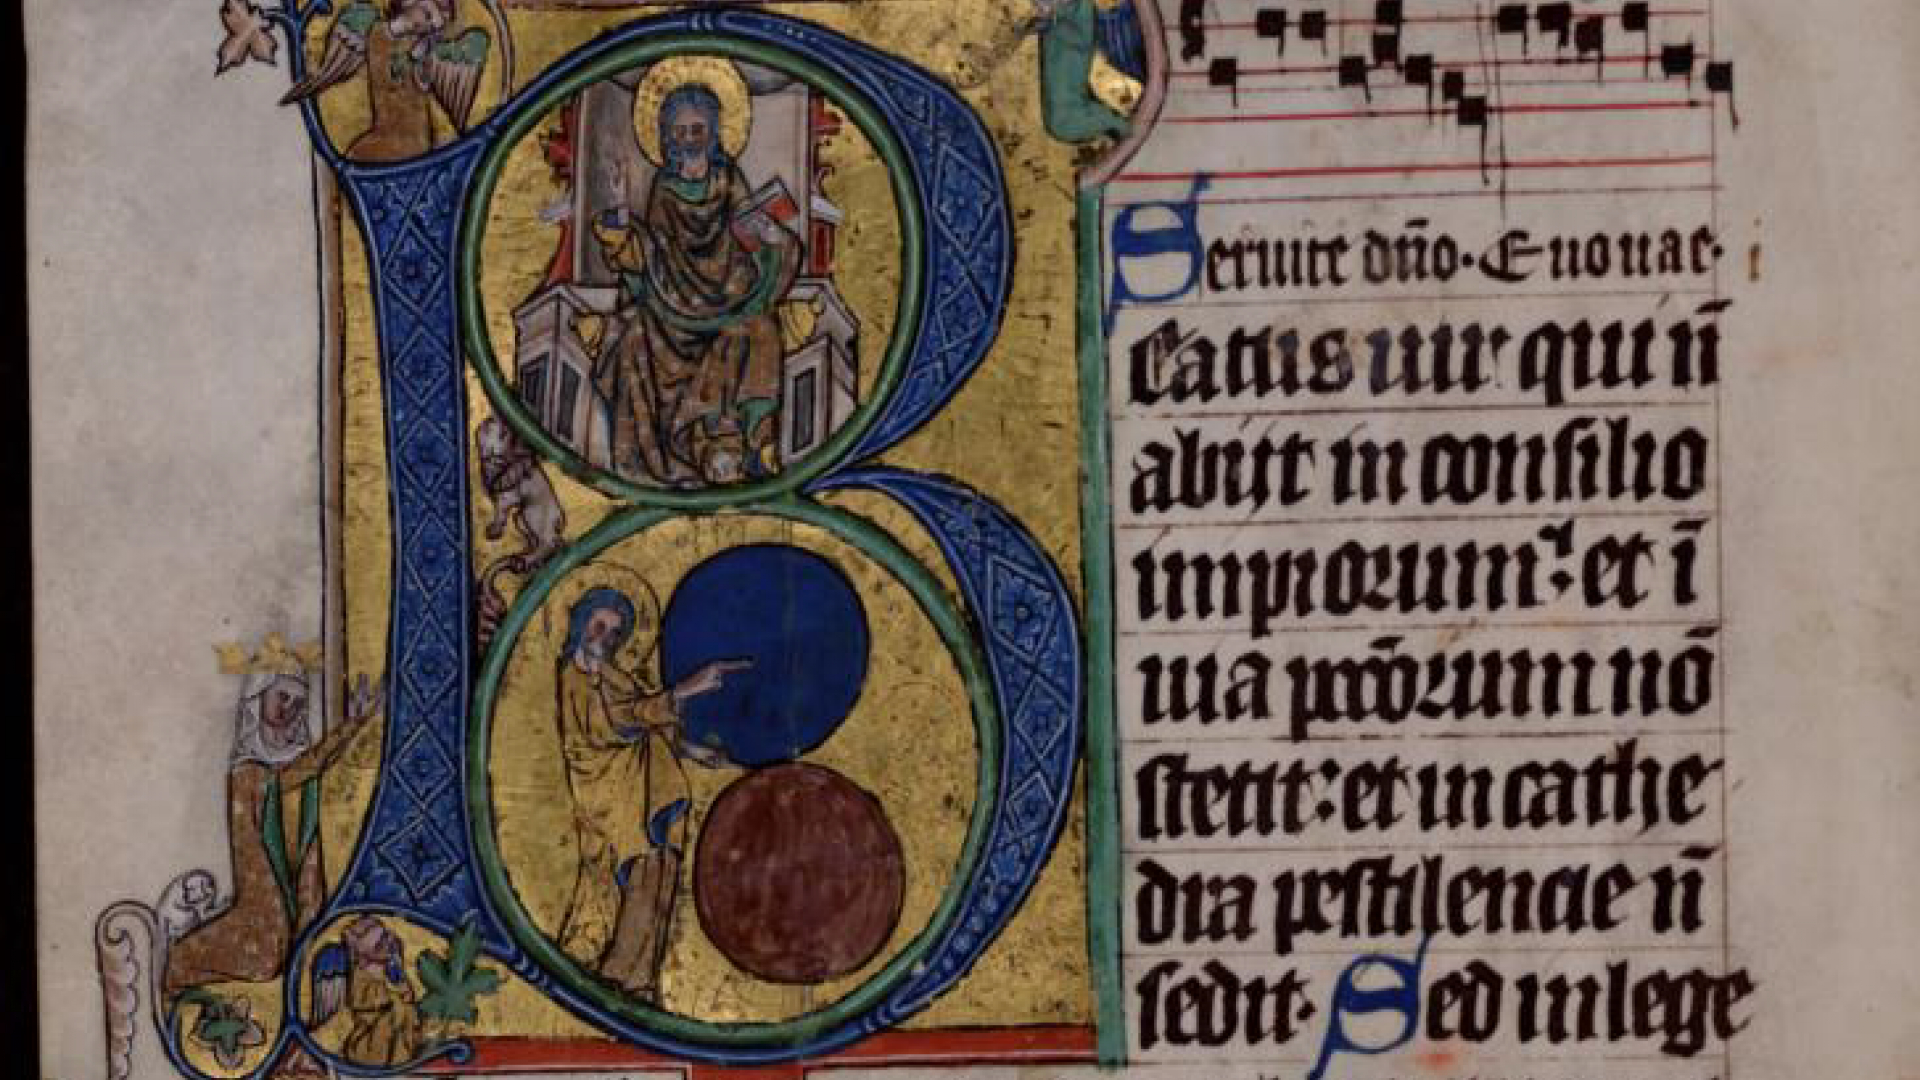 Seruite dño. Euouae.
Beatus uir qui ñ
abijt in consilio
impiorum: et ī
uia pccōrum nō
stetit: et in cathe
dra pestilencie ñ
sedit. Sed in lege